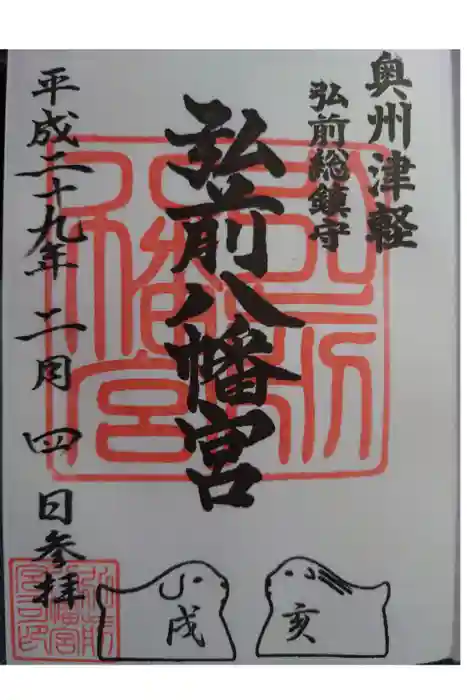 奥州津軽
弘前総鎮守
弘前八幡宮
平成二十九年二月四日参拝
戌
亥
弘前八幡宮